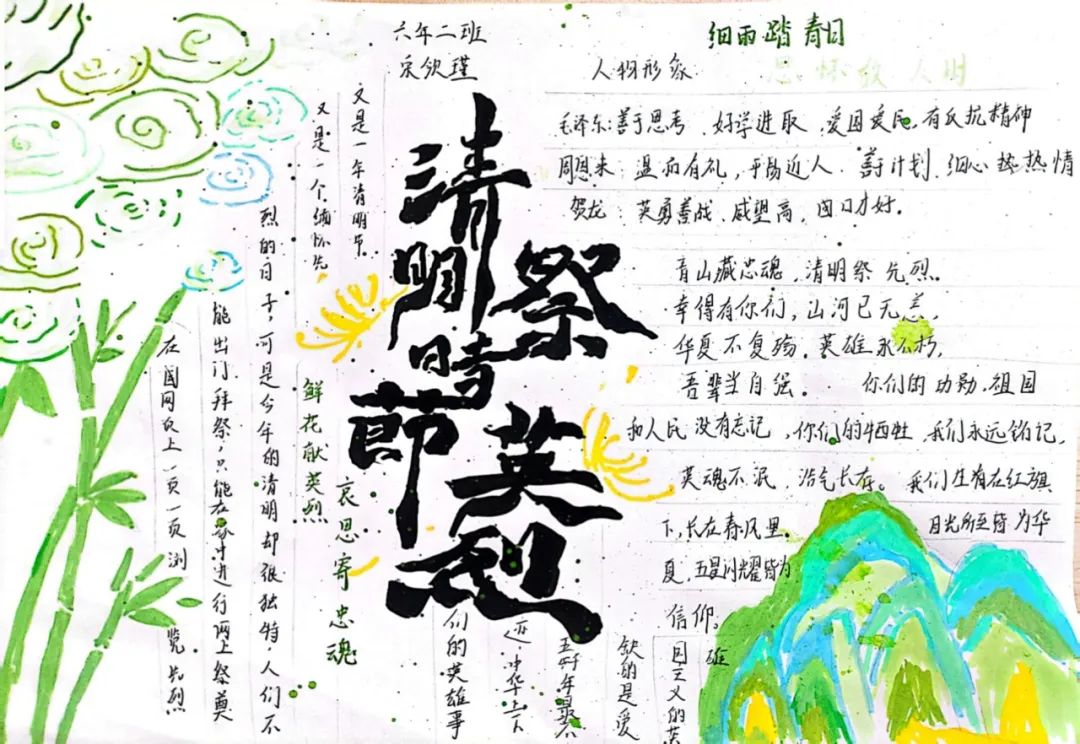 六年二班
宋钦瑾
细雨踏青日
思怀故人时
人物形象
毛泽东:善于思考 好学进取,爱国爱民,有反抗精神
周恩来:温和有礼,平易近人.善于计划.细心热情
贺龙:英勇善战.威望高,
青山藏忠魂,清明祭先烈。
幸得有你们,山河已无恙,
华夏不复殇.英雄永不朽,
吾辈当自强。 你们的功勋.祖国
和人民没有忘记,你们的牺牲,我们永远铭记,
英魂不泯 浩气长存。我们生有在红旗
下,长在春风里。目光所至皆为华
夏,五星闪耀皆为
信仰。
清明時節
祭英烈
又是一年清明节。
又是一个缅怀先
烈的日子,可是今年的清明却很独特,人们不
能出门拜祭,只能在家中进行网上祭奠
在国网页上一页一页浏览先烈
们的英雄事
迹,中华上下
五千年最不
缺的是爱
国主义的英
雄
鲜花献英烈
哀思寄忠魂